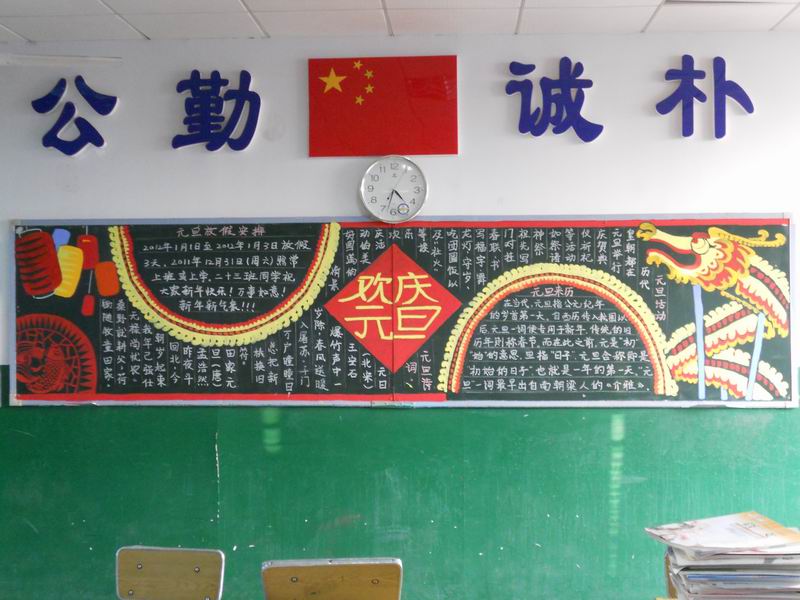 公 勤 诚 朴
元旦放假安排
2012年1月1日至2012年1月3日放假
3天、2011年12月31日(周六)照常
上班蓝上学、二十三班同学祝
大家新年快乐!万事如意!
新年新气象!!!
欢庆
元旦
元旦诗
词、
元日
(北宋)
王安石
爆竹声中一
岁除,春风送暖
入屠苏。千门
万户曈曈日,
总把新
桃换旧
符。
田家元
旦(唐)
孟浩然
昨夜斗
回北,今
朝岁起东
我年已强仕
无禄尚忧农。
桑野就耕父,荷
锄随牧童。田家
元旦来历
在古代、元旦指公元纪年
的岁首第一天。自西历传入我国以
后,元旦一词便专用于新年,传统的旧
历年则称春节。而在此之前,元是"初"
"始"的意思,旦指"日子",元旦合称即是
"初始的日子",也就是一年的第一天。"元
旦"一词最早出自南朝梁人的《介雅》。
元旦活动
历代
皇朝都在
元旦举行
庆贺典
仪祈礼
等活动
如祭诸
神祭
祖先写
门对挂
春联,书
写福字、舞
龙灯、守岁、
吃团圆饭以
及"社火"
等娱
乐